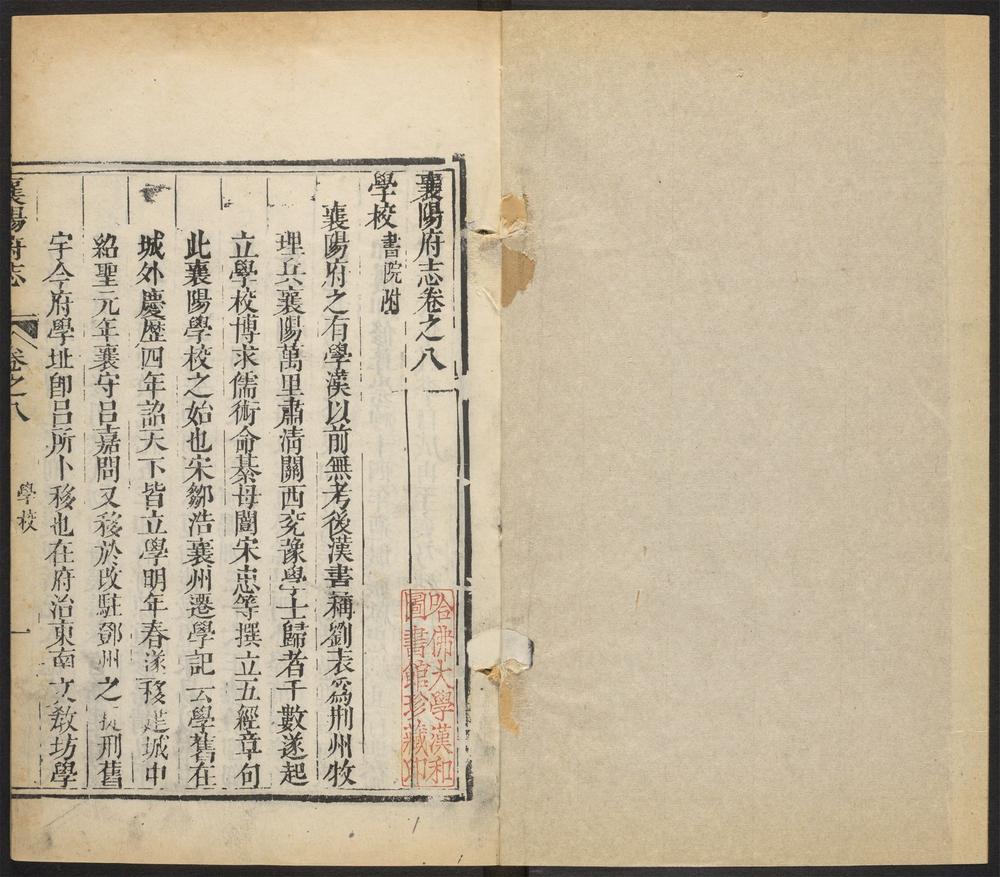 襄陽府志卷之八
學校書院附
襄陽府之有學漢以前無考後漢書稱劉表爲荆州牧
理兵襄陽萬里肅清關西兖豫學士歸者千數遂起
立學校博求儒術命綦母闓宋忠等撰立五經章句
此襄陽學校之始也宋鄒浩襄州遷學記云學舊在
城外慶歷四年詔天下皆立學明年春遂移建城中
紹聖元年襄守呂嘉問又移於改駐鄧州之提刑舊
宇今府學址卽呂所卜移也在府治東南文敎坊學
襄陽府志 卷之八 學校 一
哈佛大學漢和
圖書館珍藏印